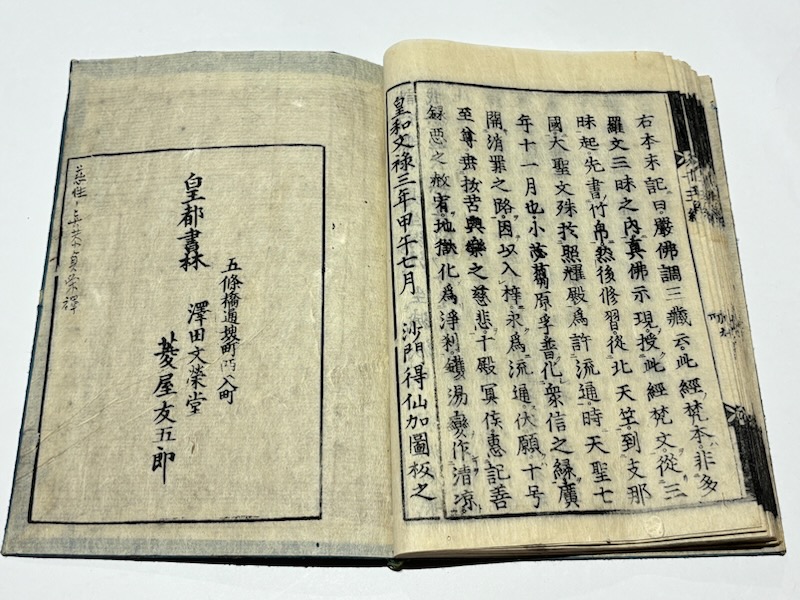 右本末記曰嚴佛調三藏云此經梵本非多
羅文三昧之內真佛示現授此經梵文從三
昧起先書竹帛然後修習從北天竺到支那
國大聖文殊扵照耀殿爲許流通時天聖七
年十一月也小苾蒭原孚普化衆信之緣廣
開消罪之路因以入梓永爲流通伏願十号
至尊垂抜苦與樂之慈悲十殿冥侯惠記善
錄惡之赦宥地獄化爲淨刹鑊湯變作清凉
皇和文祿三年甲午七月 沙門得仙加圖板之
五條橋通堺町西入町
皇都書林 澤田文榮堂
菱屋友五郎